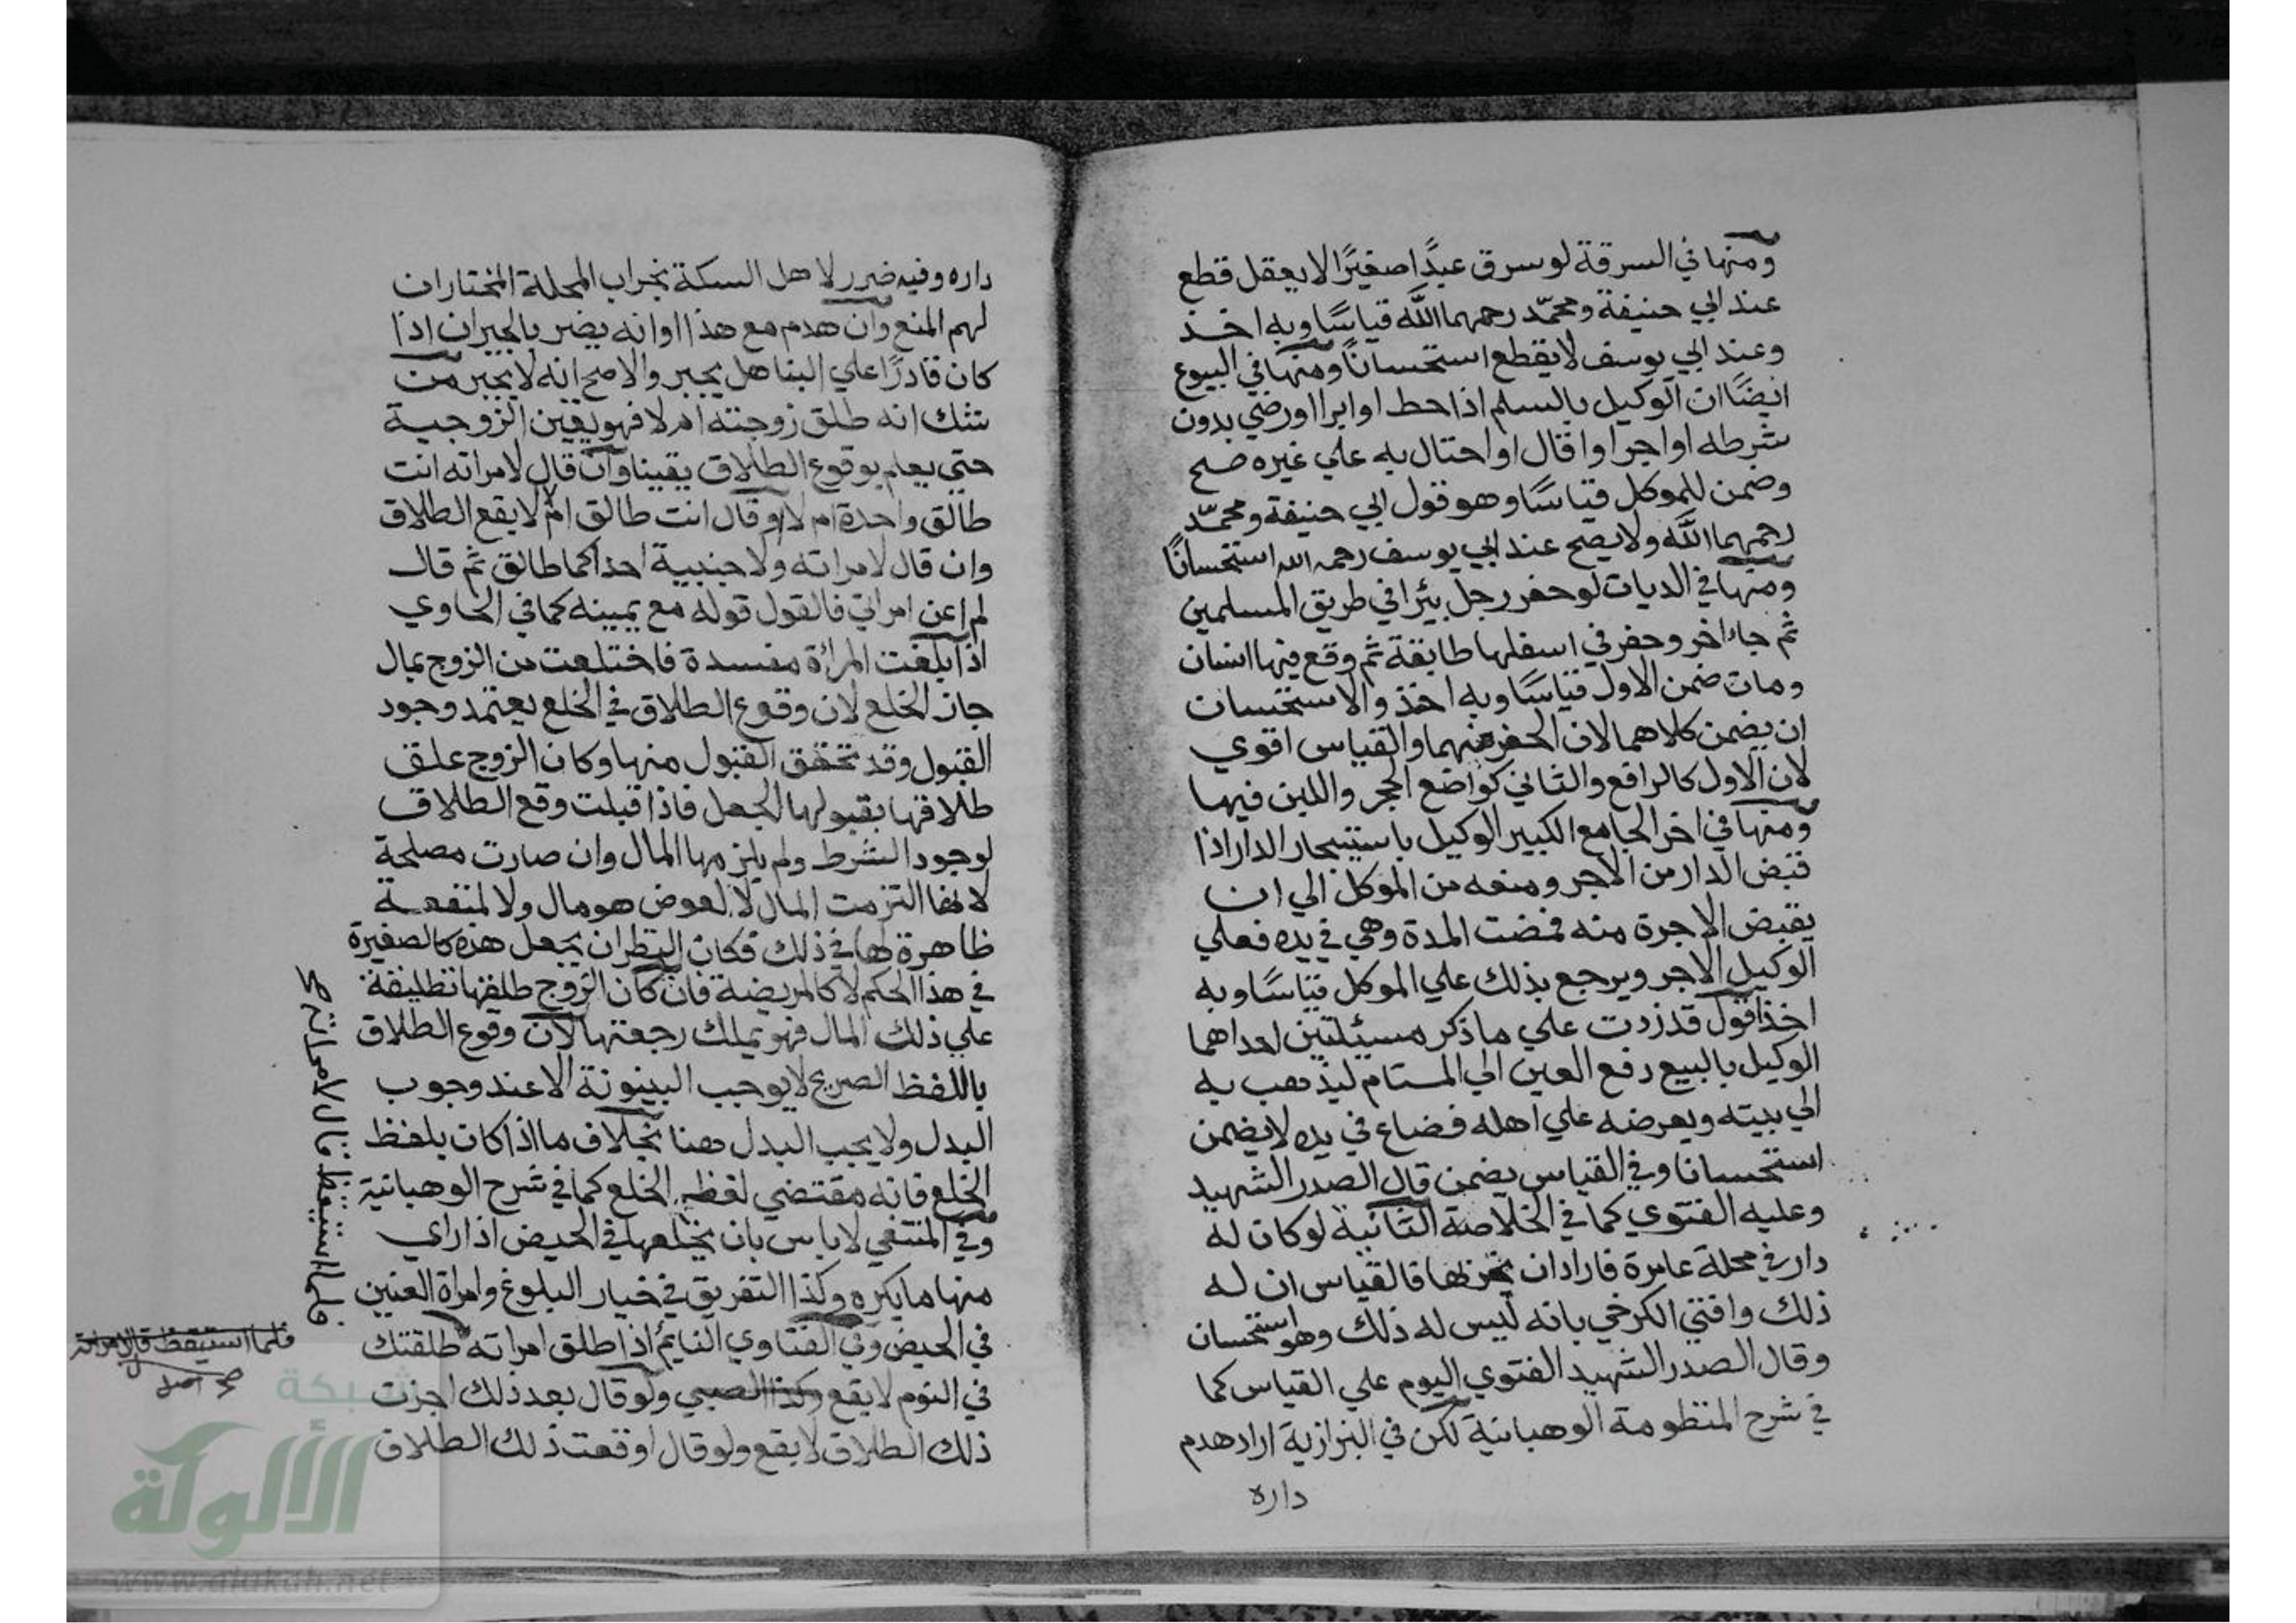 ومنها في السرقة لو سرق عبدًا صغيرًا لا يعقل قطع
عند ابي حنيفة ومحمّد رحمهما اللّه قياسًا وبه اخذ
وعند ابي يوسف لا يقطع استحسانًا ومنها في البيوع
ايضًا ان الوكيل بالسلم اذا حط او ابرا او رضي بدون
شرطه او اجرا واقال او احتال به علي غيره صح
وضمن للموكل قياسًا وهو قول ابي حنيفة ومحمّد
رحمهما اللّه ولا يصح عند ابي يوسف رحمه الله استحسانًا
ومنها في الديات لو حفر رجل بيرًا في طريق المسلمين
ثم جاء اخر وحفر في اسفلها طايفة ثم وقع فيها انسان
ومات ضمن الاول قياسًا وبه اخذ والاستحسان
ان يضمن كلاهما لان الحفر منهما والقياس اقوي
لان الاول كالرافع والثاني كواضع الحجر واللبن فيها
ومنها في اخر الجامع الكبير الوكيل باستيجار الدار اذا
قبض الدار من الاجر ومنعه من الموكل الي ان
يقبض الاجرة منه فمضت المدة وهي في يده فعلي
الوكيل الاجر ويرجع بذلك علي الموكل قياسًا وبه
اخذ اقول قد زدت علي ما ذكر مسئلتين احداهما
الوكيل بالبيع دفع العين الي المستام ليذهب به
الي بيته ويعرضه علي اهله فضاع في يده لا يضمن
استحسانا وفي القياس يضمن قال الصدر الشهيد
وعليه الفتوي كما في الخلاصة الثانية لو كان له
دار في محلة عامرة فاراد ان يخربها فالقياس ان له
ذلك وافتي الكرخي بانه ليس له ذلك وهو استحسان
وقال الصدر الشهيد الفتوي اليوم علي القياس كما
في شرح المنظومة الوهبانية لكن في البزازية اراد هدم
داره
داره وفيه ضرر لاهل السكة بخراب المحلة المختار ان
لهم المنع وان هدم مع هذا او انه يضر بالجيران اذا
كان قادرًا علي البنا هل يجبر والاصح انه لا يجبر من
شك انه طلق زوجته ام لا فهو يقين الزوجية
حتي يعلم بوقوع الطلاق يقينا وان قال لامراته انت
طالق واحدة ام لا او قال انت طالق ام لا لا يقع الطلاق
وان قال لامراته ولاجنبية احداكما طالق ثم قال
لم اعن امراتي فالقول قوله مع يمينه كما في الحاوي
اذا بلغت المراة مفسدة فاختلعت من الزوج بمال
جاز الخلع لان وقوع الطلاق في الخلع يعتمد وجود
القبول وقد تحقق القبول منها وكان الزوج علق
طلاقها بقبولها الجعل فاذا قبلت وقع الطلاق
لوجود الشرط ولم يلزمها المال وان صارت مصلحة
لانها التزمت المال لا لعوض هو مال ولا لمنفعة
ظاهرة لها في ذلك فكان النظر ان يجعل هذه كالصغيرة
في هذا الحكم لا كالمريضة فان كان الزوج طلقها تطليقة
علي ذلك المال فهو يملك رجعتها لان وقوع الطلاق
باللفظ الصريح لا يوجب البينونة الا عند وجوب
البدل ولا يجب البدل هنا بخلاف ما اذا كان بلفظ
الخلع فانه مقتضي لفظه الخلع كما في شرح الوهبانية
وفي المنتقي لا باس بان يخلعها في الحيض اذا راي
منها ما يكره وكذا التفريق في خيار البلوغ وامراة العنين
في الحيض وفي الفتاوي النايم اذا طلق امراته طلقتك
في النوم لا يقع وكذا الصبي ولو قال بعد ذلك اجزت
ذلك الطلاق لا يقع ولو قال اوقعت ذلك الطلاق
فلما استيقظ قال لامراته صح
فلما استيقظ قال لامراته
صح اصل
شبكة
الألوكة
www.alukah.net